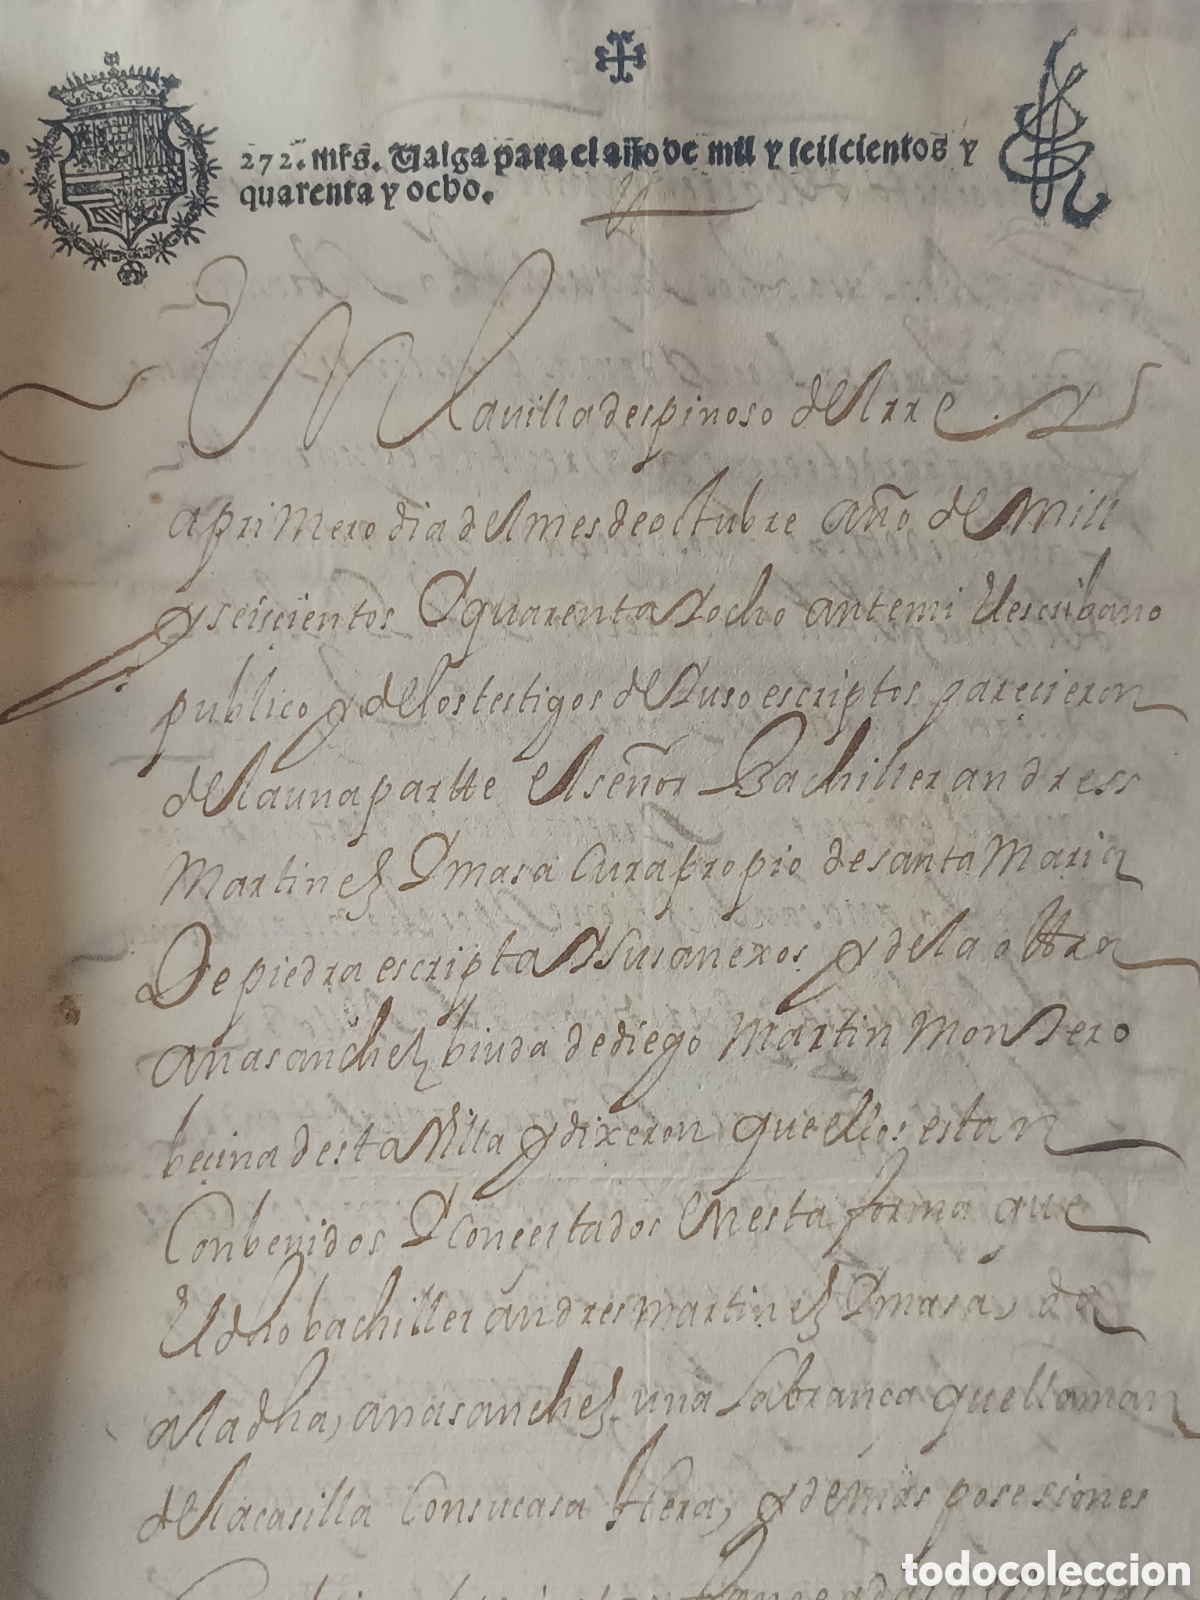 272. mrs. Valga para el año de mil y seiscientos y
quarenta y ocho.
En la villa de espinoso del rre
a primero dia del mes de octubre año de mill
y seiscientos y quarenta y ocho ante mi el escribano
publico y de los testigos de suso escriptos pareçieron
de la una partte el señor Bachiller andress
Martinez masa cura propio de santa Maria
De piedra escripta y sus anexos y de la ottra
ana sanchez biuda de diego Martin Montero
beçina desta villa y dixeron que ellos estan
Conbenidos y conçertados en esta forma que
el dho bachiller andres martinez masa, da
a la dha, ana sanchez una labranca que llaman
de la casilla Con su casa Hera, y demas posesiones
todocoleccion